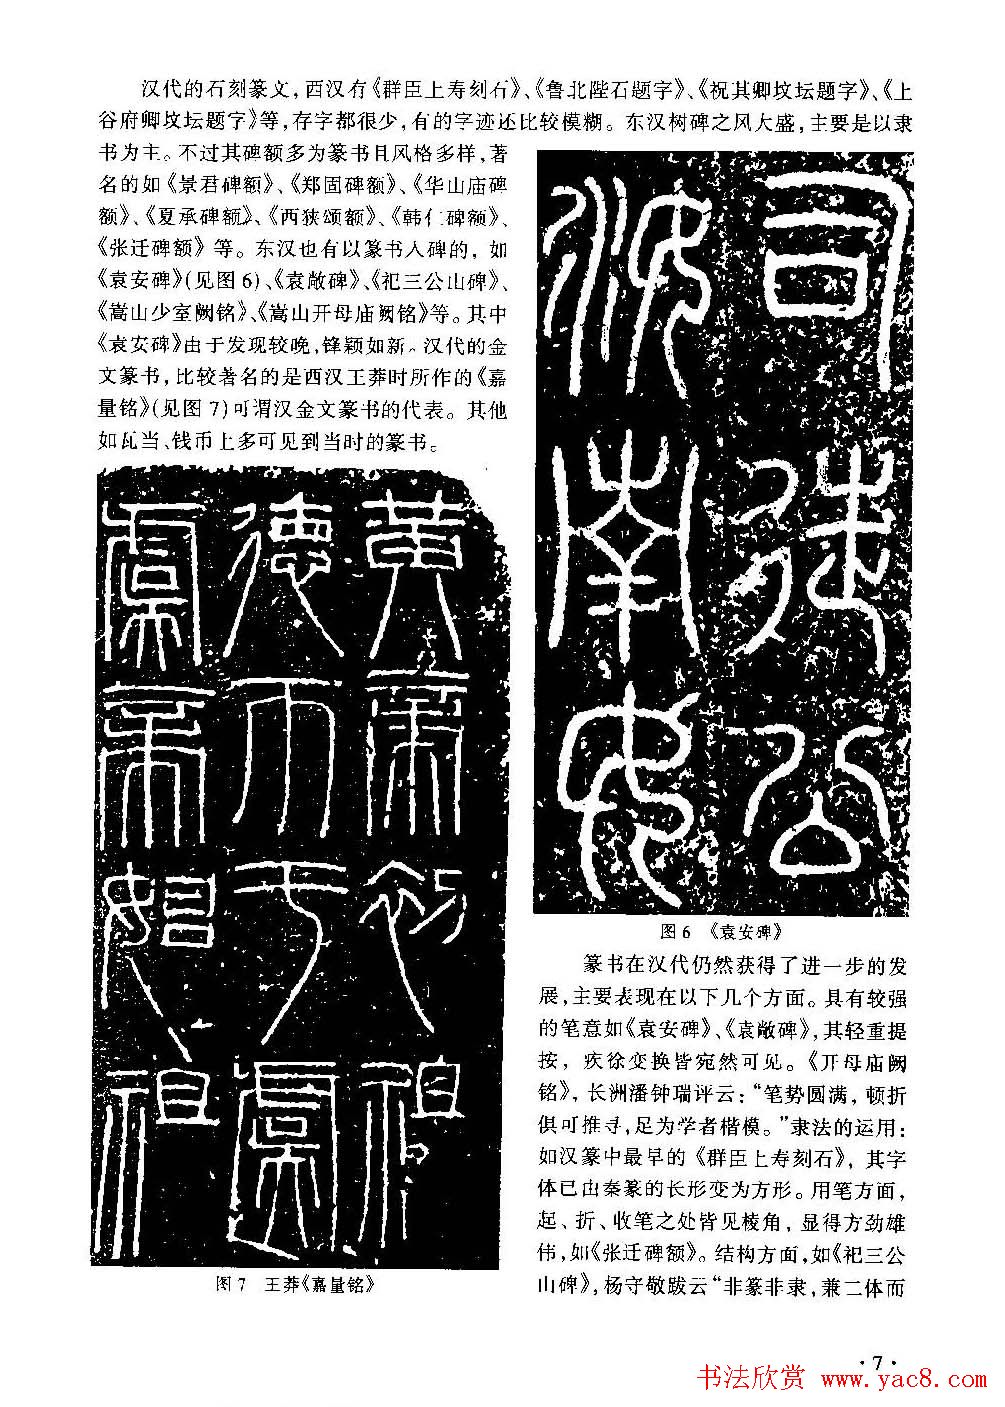 汉代的石刻篆文，西汉有《群臣上寿刻石》、《鲁北陛石题字》、《祝其卿坟坛题字》、《上
谷府卿坟坛题字》等，存字都很少，有的字迹还比较模糊。东汉树碑之风大盛，主要是以隶
书为主。不过其碑额多为篆书且风格多样，著
名的如《景君碑额》、《郑固碑额》、《华山庙碑
额》、《夏承碑额》、《西狭颂额》、《韩仁碑额》、
《张迁碑额》等。东汉也有以篆书入碑的，如
《袁安碑》(见图6)、《袁敞碑》、《祀三公山碑》、
《嵩山少室阙铭》、《嵩山开母庙阙铭》等。其中
《袁安碑》由于发现较晚，锋颖如新。汉代的金
文篆书，比较著名的是西汉王莽时所作的《嘉
量铭》(见图7)可谓汉金文篆书的代表。其他
如瓦当、钱币上多可见到当时的篆书。
司徒公
河南安
图6 《袁安碑》
黄帝初祖
德帀于虞
虞帝始祖
图7 王莽《嘉量铭》
篆书在汉代仍然获得了进一步的发
展，主要表现在以下几个方面。具有较强
的笔意如《袁安碑》、《袁敞碑》，其轻重提
按，疾徐变换皆宛然可见。《开母庙阙
铭》，长洲潘钟瑞评云：“笔势圆满，顿折
俱可推寻，足为学者楷模。”隶法的运用：
如汉篆中最早的《群臣上寿刻石》，其字
体已由秦篆的长形变为方形。用笔方面，
起、折、收笔之处皆见棱角，显得方劲雄
伟，如《张迁碑额》。结构方面，如《祀三公
山碑》，杨守敬跋云“非篆非隶，兼二体而
·7·
书法欣赏 www.yac8.com